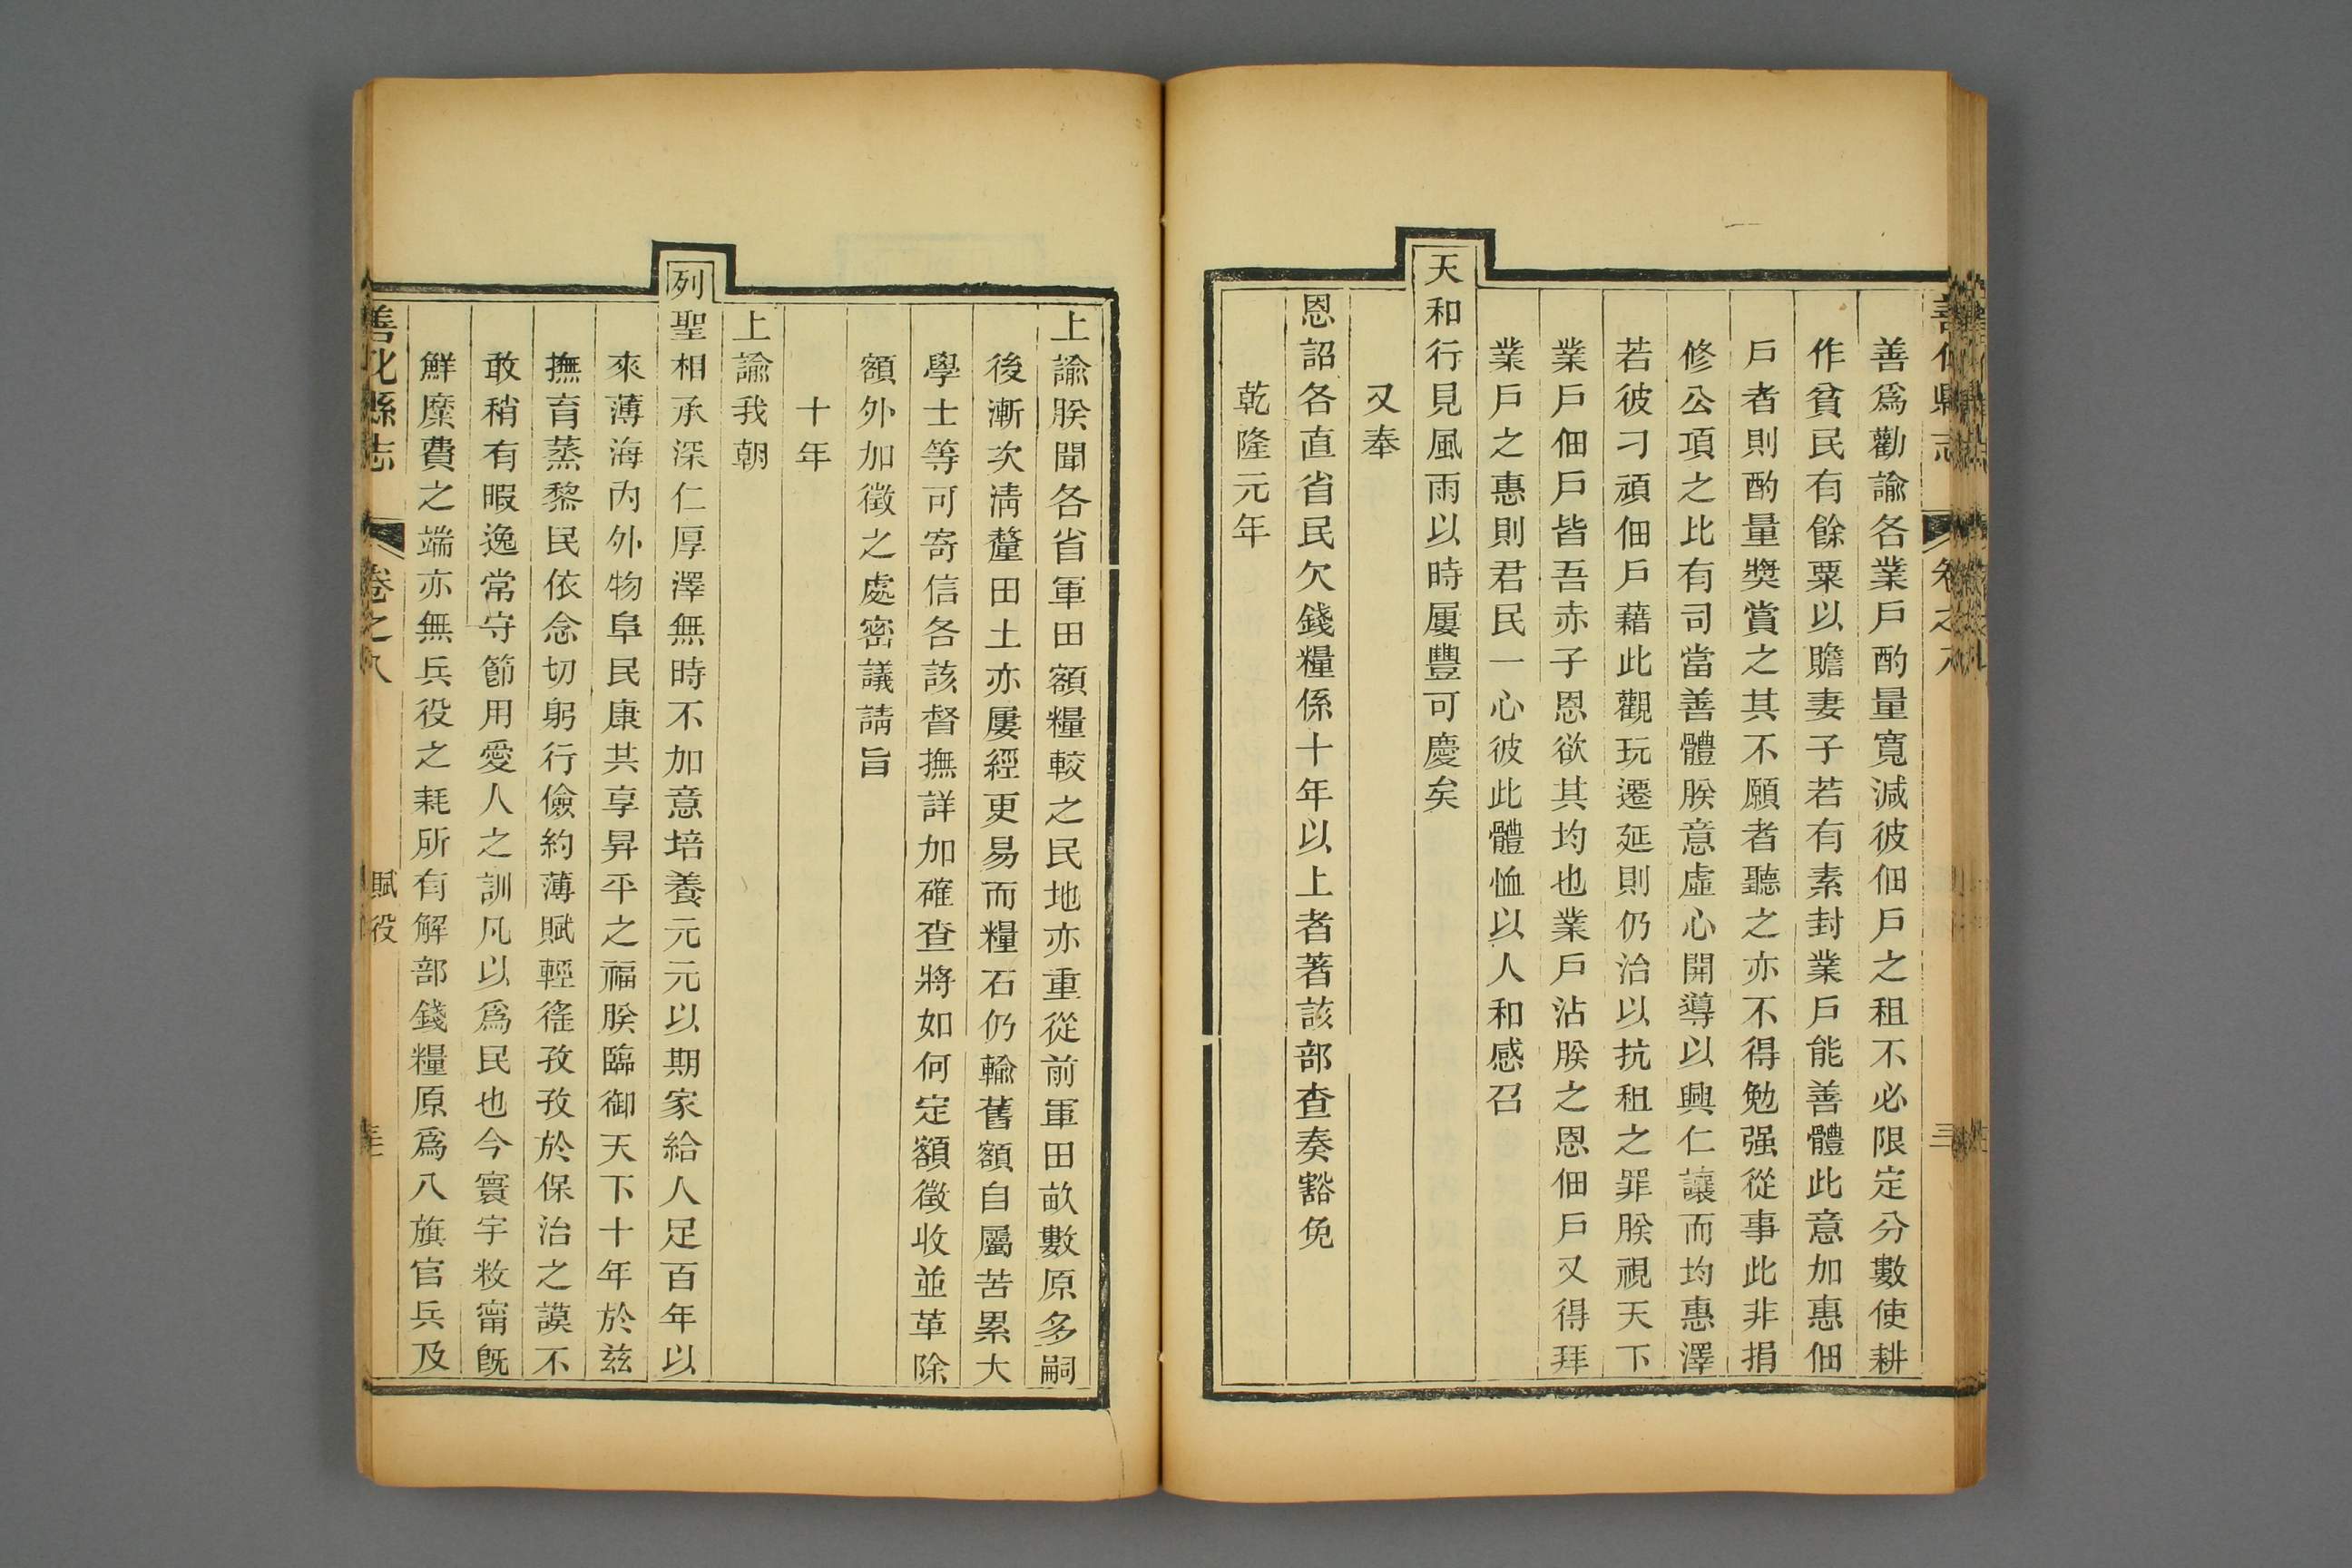 善爲勸諭各業戸酌量寬減彼佃戸之租不必限定分數使耕
作貧民有餘粟以贍妻子若有素封業戸能善體此意加惠佃
戸者則酌量奬賞之其不願者聽之亦不得勉强從事此非捐
修公項之比有司當善體朕意虛心開導以興仁讓而均惠澤
若彼刁頑佃戸藉此觀玩遷延則仍治以抗租之罪朕視天下
業戸佃戸皆吾赤子恩欲其均也業戸沾朕之恩佃戸又得拜
業戸之惠則君民一心彼此體恤以人和感召
天和行見風雨以時屢豐可慶矣
又奉
恩詔各直省民欠錢糧係十年以上者著該部查奏豁免
乾隆元年
上諭朕聞各省軍田額糧較之民地亦重從前軍田畝數原多嗣
後漸次淸釐田土亦屢經更易而糧石仍輸舊額自屬苦累大
學士等可寄信各該督撫詳加確查將如何定額徵收並革除
額外加徵之處密議請旨
十年
上諭我朝
列聖相承深仁厚澤無時不加意培養元元以期家給人足百年以
來薄海內外物阜民康共享昇平之福朕臨御天下十年於兹
撫育蒸黎民依念切躬行儉約薄賦輕徭孜孜於保治之謨不
敢稍有暇逸常守節用愛人之訓凡以爲民也今寰宇敉甯旣
鮮糜費之端亦無兵役之耗所有解部錢糧原爲八旗官兵及
善化縣志 卷之八 賦役